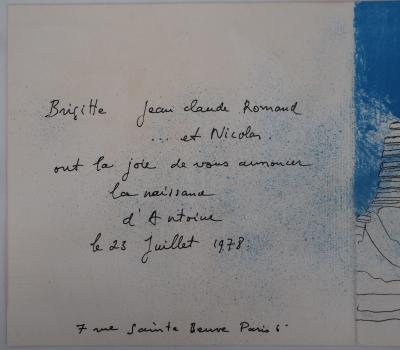 Brigitte Jean Claude Romand
... et Nicolas.
ont la joie de vous annoncer
la naissance
d'Antoine
le 23 Juillet 1978.
7 rue Sainte Beuve Paris 6